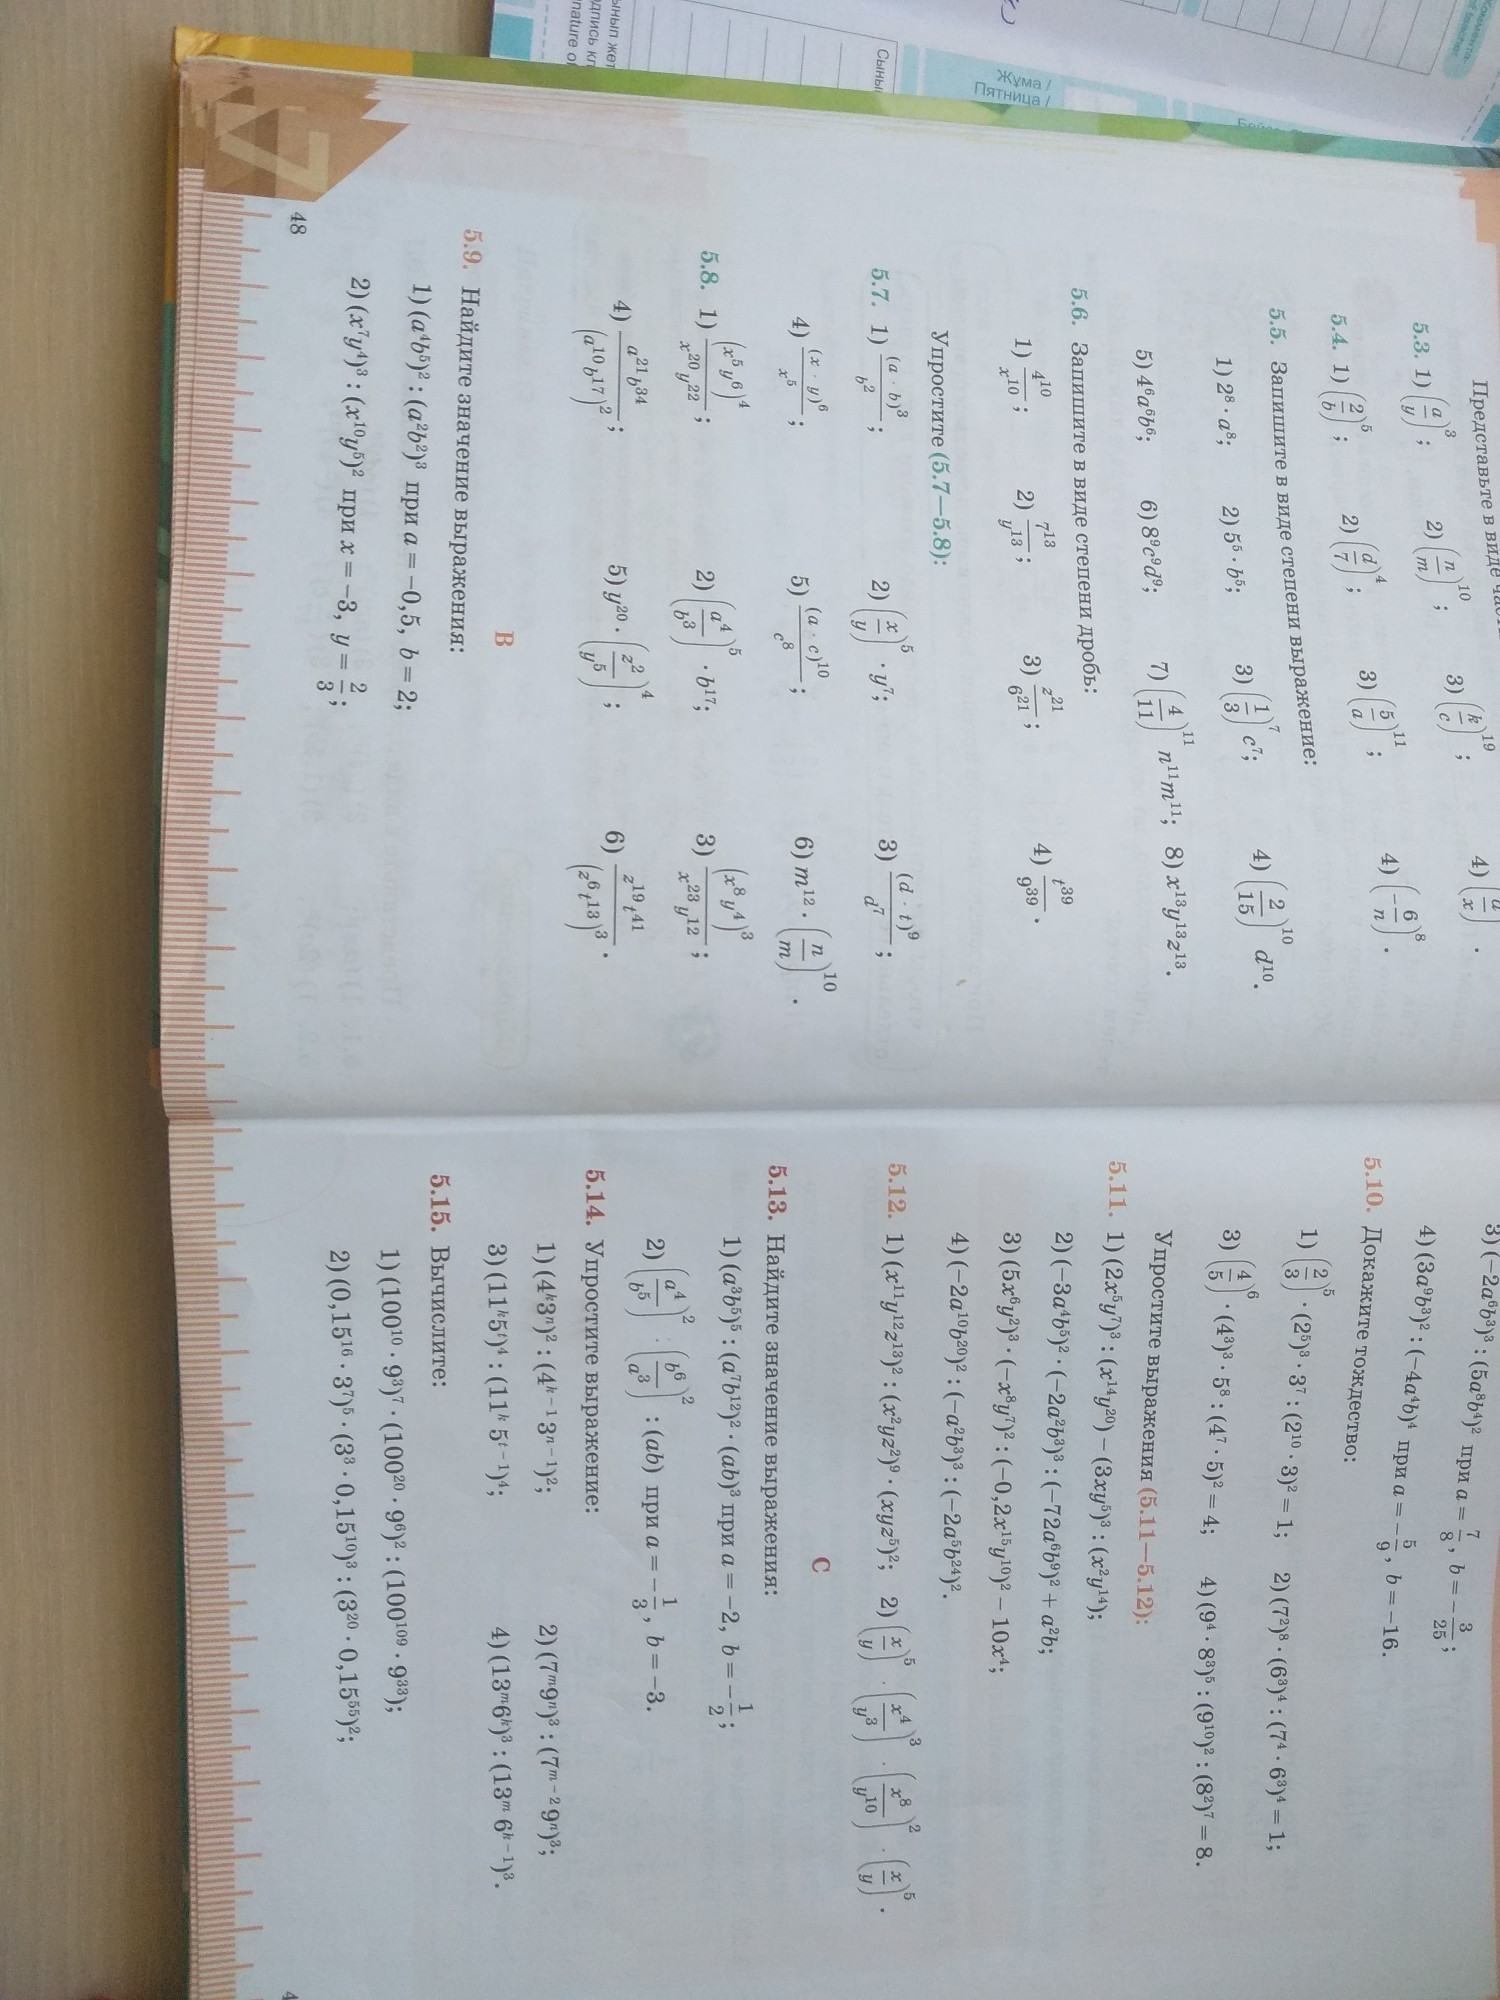 Жұма /
Пятница /
Сынып
Представьте в виде
5.3. 1) (a/y)³; 2) (n/m)¹⁰; 3) (k/c)¹⁹; 4)
5.4. 1) (2/b)⁵; 2) (d/7)⁴; 3) (5/a)¹¹; 4) (−6/n)⁸.
5.5. Запишите в виде степени выражение:
1) 2⁸ · a⁸; 2) 5⁵ · b⁵; 3) (1/3)⁷ c⁷; 4) (2/15)¹⁰ d¹⁰.
5) 4⁶a⁶b⁶; 6) 8⁹c⁹d⁹; 7) (4/11)¹¹ n¹¹m¹¹; 8) x¹³y¹³z¹³.
5.6. Запишите в виде степени дробь:
1) 4¹⁰/x¹⁰; 2) 7¹³/y¹³; 3) z²¹/6²¹; 4) t³⁹/9³⁹.
Упростите (5.7—5.8):
5.7. 1) (a · b)³/b²; 2) (x/y)⁵ · y⁷; 3) (d · t)⁹/d⁷;
4) (x · y)⁶/x⁵; 5) (a · c)¹⁰/c⁸; 6) m¹² · (n/m)¹⁰.
5.8. 1) (x⁵y⁶)⁴/x²⁰y²²; 2) (a⁴/b³)⁵ · b¹⁷; 3) (x⁸y⁴)³/x²³y¹²;
4) a²¹b³⁴/(a¹⁰b¹⁷)²; 5) y²⁰ · (z²/y⁵)⁴; 6) z¹⁹t⁴¹/(z⁶t¹³)³.
B
5.9. Найдите значение выражения:
1) (a⁴b⁵)² : (a²b²)³ при a = −0,5, b = 2;
2) (x⁷y⁴)³ : (x¹⁰y⁵)² при x = −3, y = 2/3;
48
3) (−2a⁶b³)³ : (5a⁸b⁴)² при a = 7/8, b = −3/25;
4) (3a⁹b³)² : (−4a⁴b)⁴ при a = −5/9, b = −16.
5.10. Докажите тождество:
1) (2/3)⁵ · (2⁵)³ · 3⁷ : (2¹⁰ · 3)² = 1; 2) (7²)⁸ · (6³)⁴ : (7⁴ · 6³)⁴ = 1;
3) (4/5)⁶ · (4³)³ · 5⁸ : (4⁷ · 5)² = 4; 4) (9⁴ · 8³)⁵ : (9¹⁰)² : (8²)⁷ = 8.
Упростите выражения (5.11—5.12):
5.11. 1) (2x⁵y⁷)³ : (x¹⁴y²⁰) − (3xy⁵)³ : (x²y¹⁴);
2) (−3a⁴b⁵)² · (−2a²b³)³ : (−72a⁶b⁹)² + a²b;
3) (5x⁶y²)³ · (−x⁸y⁷)² : (−0,2x¹⁵y¹⁰)² − 10x⁴;
4) (−2a¹⁰b²⁰)² : (−a²b³)³ : (−2a⁵b²⁴)².
5.12. 1) (x¹¹y¹²z¹³)² : (x²yz²)⁹ · (xyz⁵)²; 2) (x/y)⁵ · (x⁴/y³)³ · (x⁸/y¹⁰)² · (x/y)⁵.
C
5.13. Найдите значение выражения:
1) (a³b⁵)⁵ : (a⁷b¹²)² · (ab)³ при a = −2, b = −1/2;
2) (a⁴/b⁵)² · (b⁶/a³)² : (ab) при a = −1/3, b = −3.
5.14. Упростите выражение:
1) (4ᵏ3ⁿ)² : (4ᵏ⁻¹3ⁿ⁻¹)²; 2) (7ᵐ9ⁿ)³ : (7ᵐ⁻²9ⁿ)³;
3) (11ᵏ5ᵗ)⁴ : (11ᵏ5ᵗ⁻¹)⁴; 4) (13ᵐ6ᵏ)³ : (13ᵐ6ᵏ⁻¹)³.
5.15. Вычислите:
1) (100¹⁰ · 9³)⁷ · (100²⁰ · 9⁶)² : (100¹⁰⁹ · 9³³);
2) (0,15¹⁶ · 3⁷)⁵ · (3³ · 0,15¹⁰)³ : (3²⁰ · 0,15⁵⁵)²;